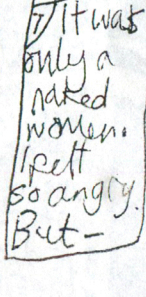 7) It was
only a
naked
women.
I felt
so angry.
But –